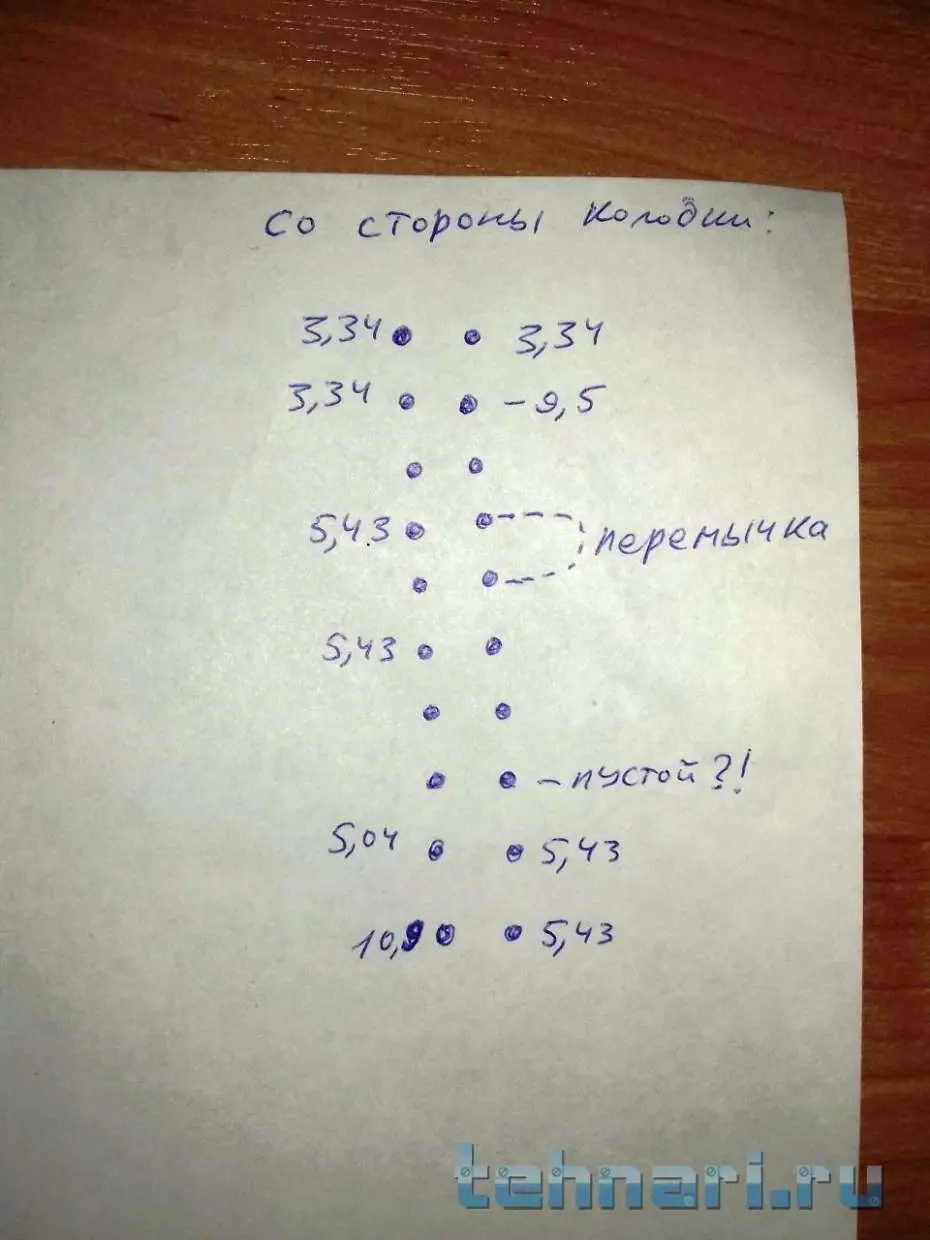 Со стороны колодки:
3,34 3,34
3,34 -9,5
5,43
перемычка
5,43
- пустой?!
5,04 5,43
10,9 5,43
tehnari.ru